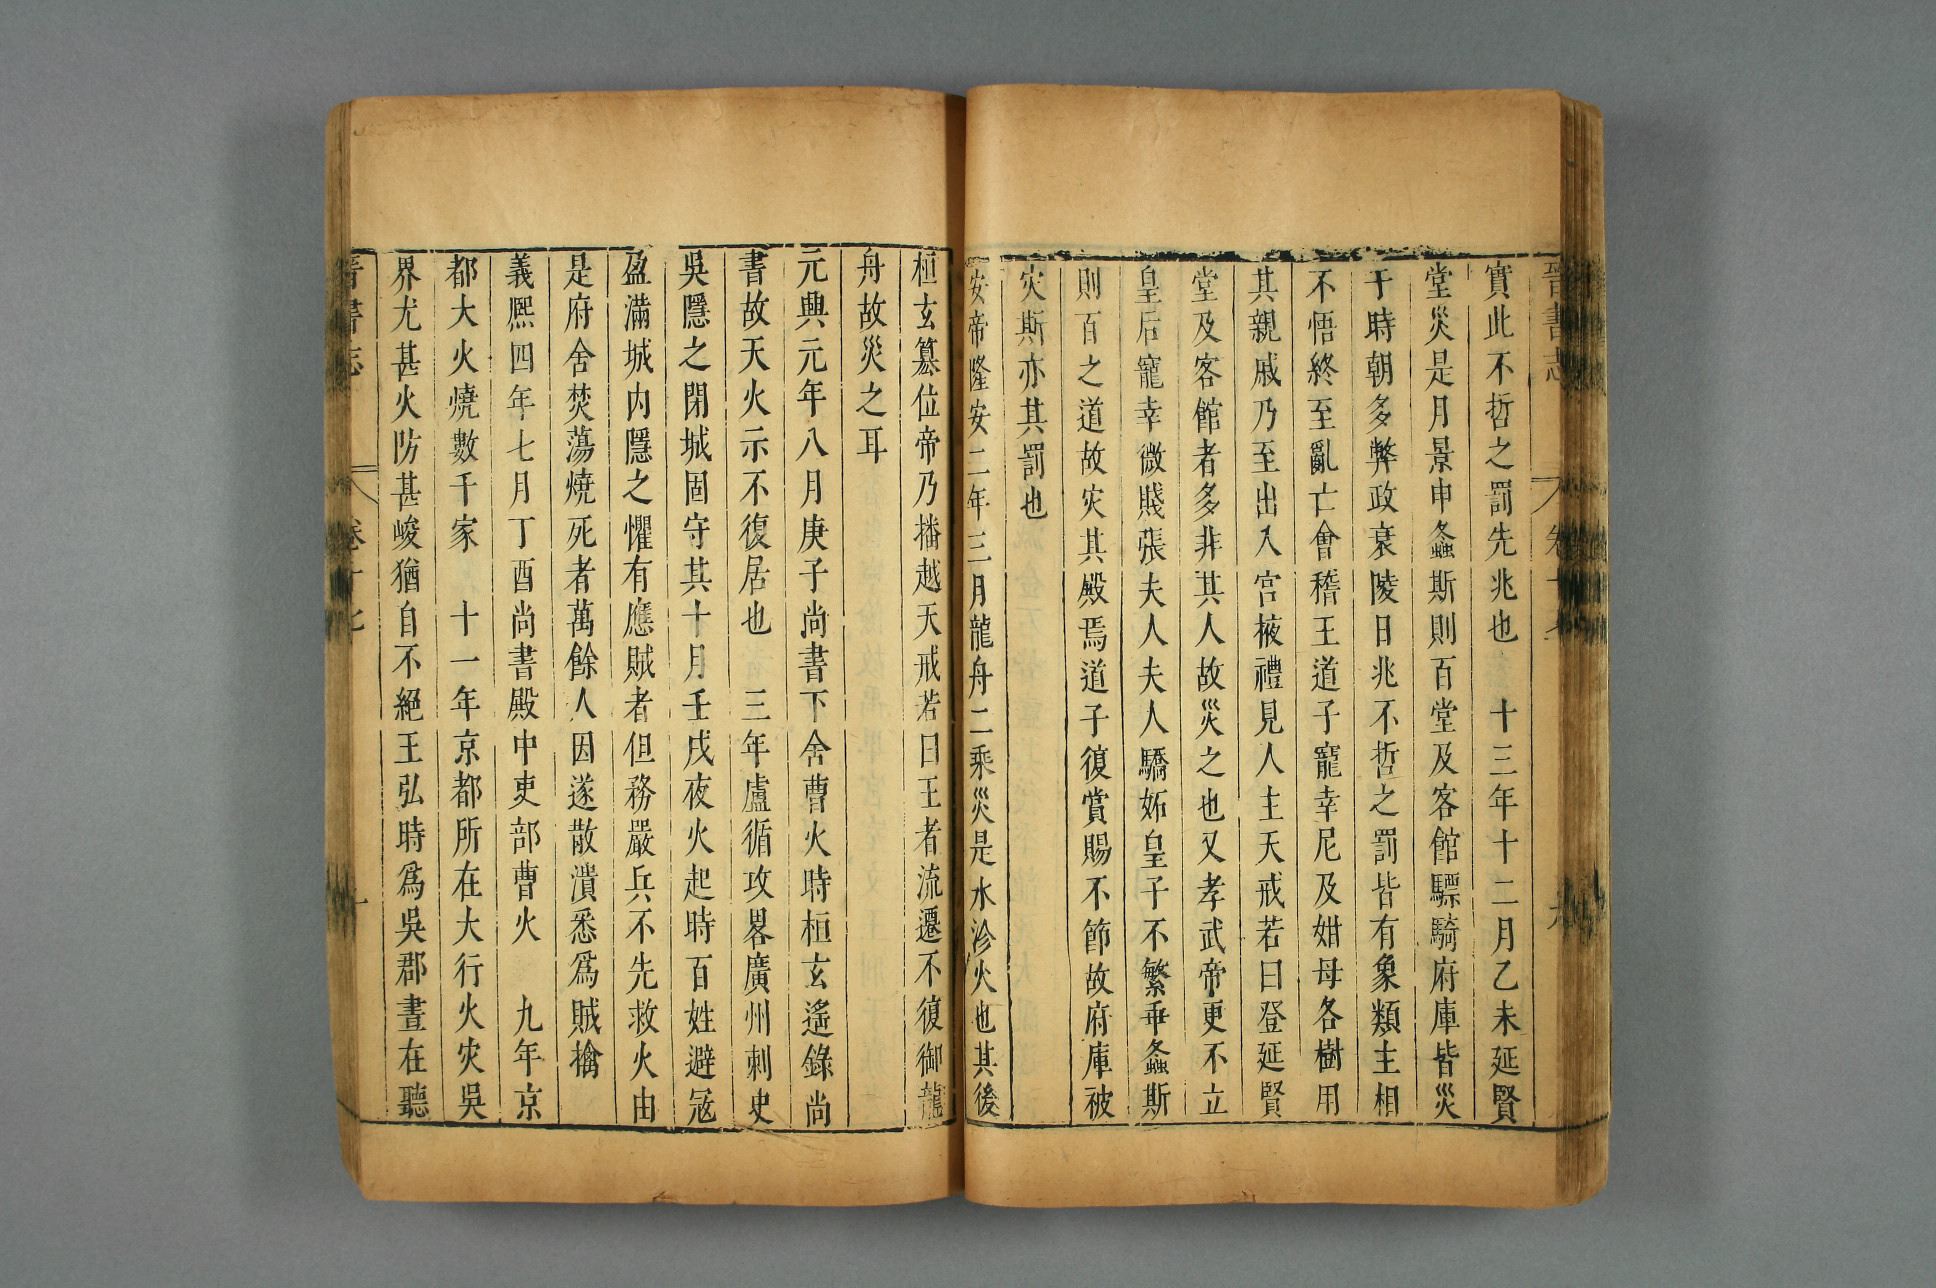 晉書志 卷十七 九
實此不哲之罰先兆也 十三年十二月乙未延賢
堂災是月景申螽斯則百堂及客館驃騎府庫皆災
于時朝多弊政衰陵日兆不哲之罰皆有象類主相
不悟終至亂亡會稽王道子寵幸尼及姏母各樹用
其親戚乃至出入宮掖禮見人主天戒若曰登延賢
堂及客館者多非其人故災之也又孝武帝更不立
皇后寵幸微賤張夫人夫人驕妬皇子不繁乖螽斯
則百之道故灾其殿焉道子復賞賜不節故府庫被
灾斯亦其罰也
安帝隆安二年三月龍舟二乘災是水沴火也其後
桓玄簒位帝乃播越天戒若曰王者流遷不復御龍
舟故災之耳
元興元年八月庚子尚書下舍曹火時桓玄遙錄尚
書故天火示不復居也 三年盧循攻畧廣州刺史
吳隱之閉城固守其十月壬戌夜火起時百姓避寇
盈滿城內隱之懼有應賊者但務嚴兵不先救火由
是府舍焚蕩燒死者萬餘人因遂散潰悉爲賊擒
義熙四年七月丁酉尚書殿中吏部曹火 九年京
都大火燒數千家 十一年京都所在大行火灾吳
界尤甚火防甚峻猶自不絕王弘時爲吳郡晝在聽
晉書志 卷十七